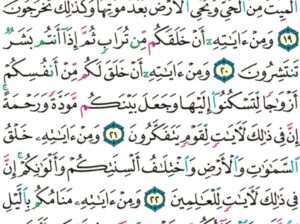 ٱلْمَيِّتَ مِنَ ٱلْحَىِّ وَيُحْىِ ٱلْأَرْضَ بَعْدَ مَوْتِهَا وَكَذَٰلِكَ تُخْرَجُونَ
١٩ وَمِنْ ءَايَٰتِهِۦٓ أَنْ خَلَقَكُم مِّن تُرَابٍ ثُمَّ إِذَآ أَنتُم بَشَرٌ
تَنتَشِرُونَ ٢٠ وَمِنْ ءَايَٰتِهِۦٓ أَنْ خَلَقَ لَكُم مِّنْ أَنفُسِكُمْ
أَزْوَٰجًا لِّتَسْكُنُوٓا۟ إِلَيْهَا وَجَعَلَ بَيْنَكُم مَّوَدَّةً وَرَحْمَةً
إِنَّ فِى ذَٰلِكَ لَءَايَٰتٍ لِّقَوْمٍ يَتَفَكَّرُونَ ٢١ وَمِنْ ءَايَٰتِهِۦ خَلْقُ
ٱلسَّمَٰوَٰتِ وَٱلْأَرْضِ وَٱخْتِلَٰفُ أَلْسِنَتِكُمْ وَأَلْوَٰنِكُمْ إِنَّ
فِى ذَٰلِكَ لَءَايَٰتٍ لِّلْعَٰلِمِينَ ٢٢ وَمِنْ ءَايَٰتِهِۦ مَنَامُكُم بِٱلَّيْلِ